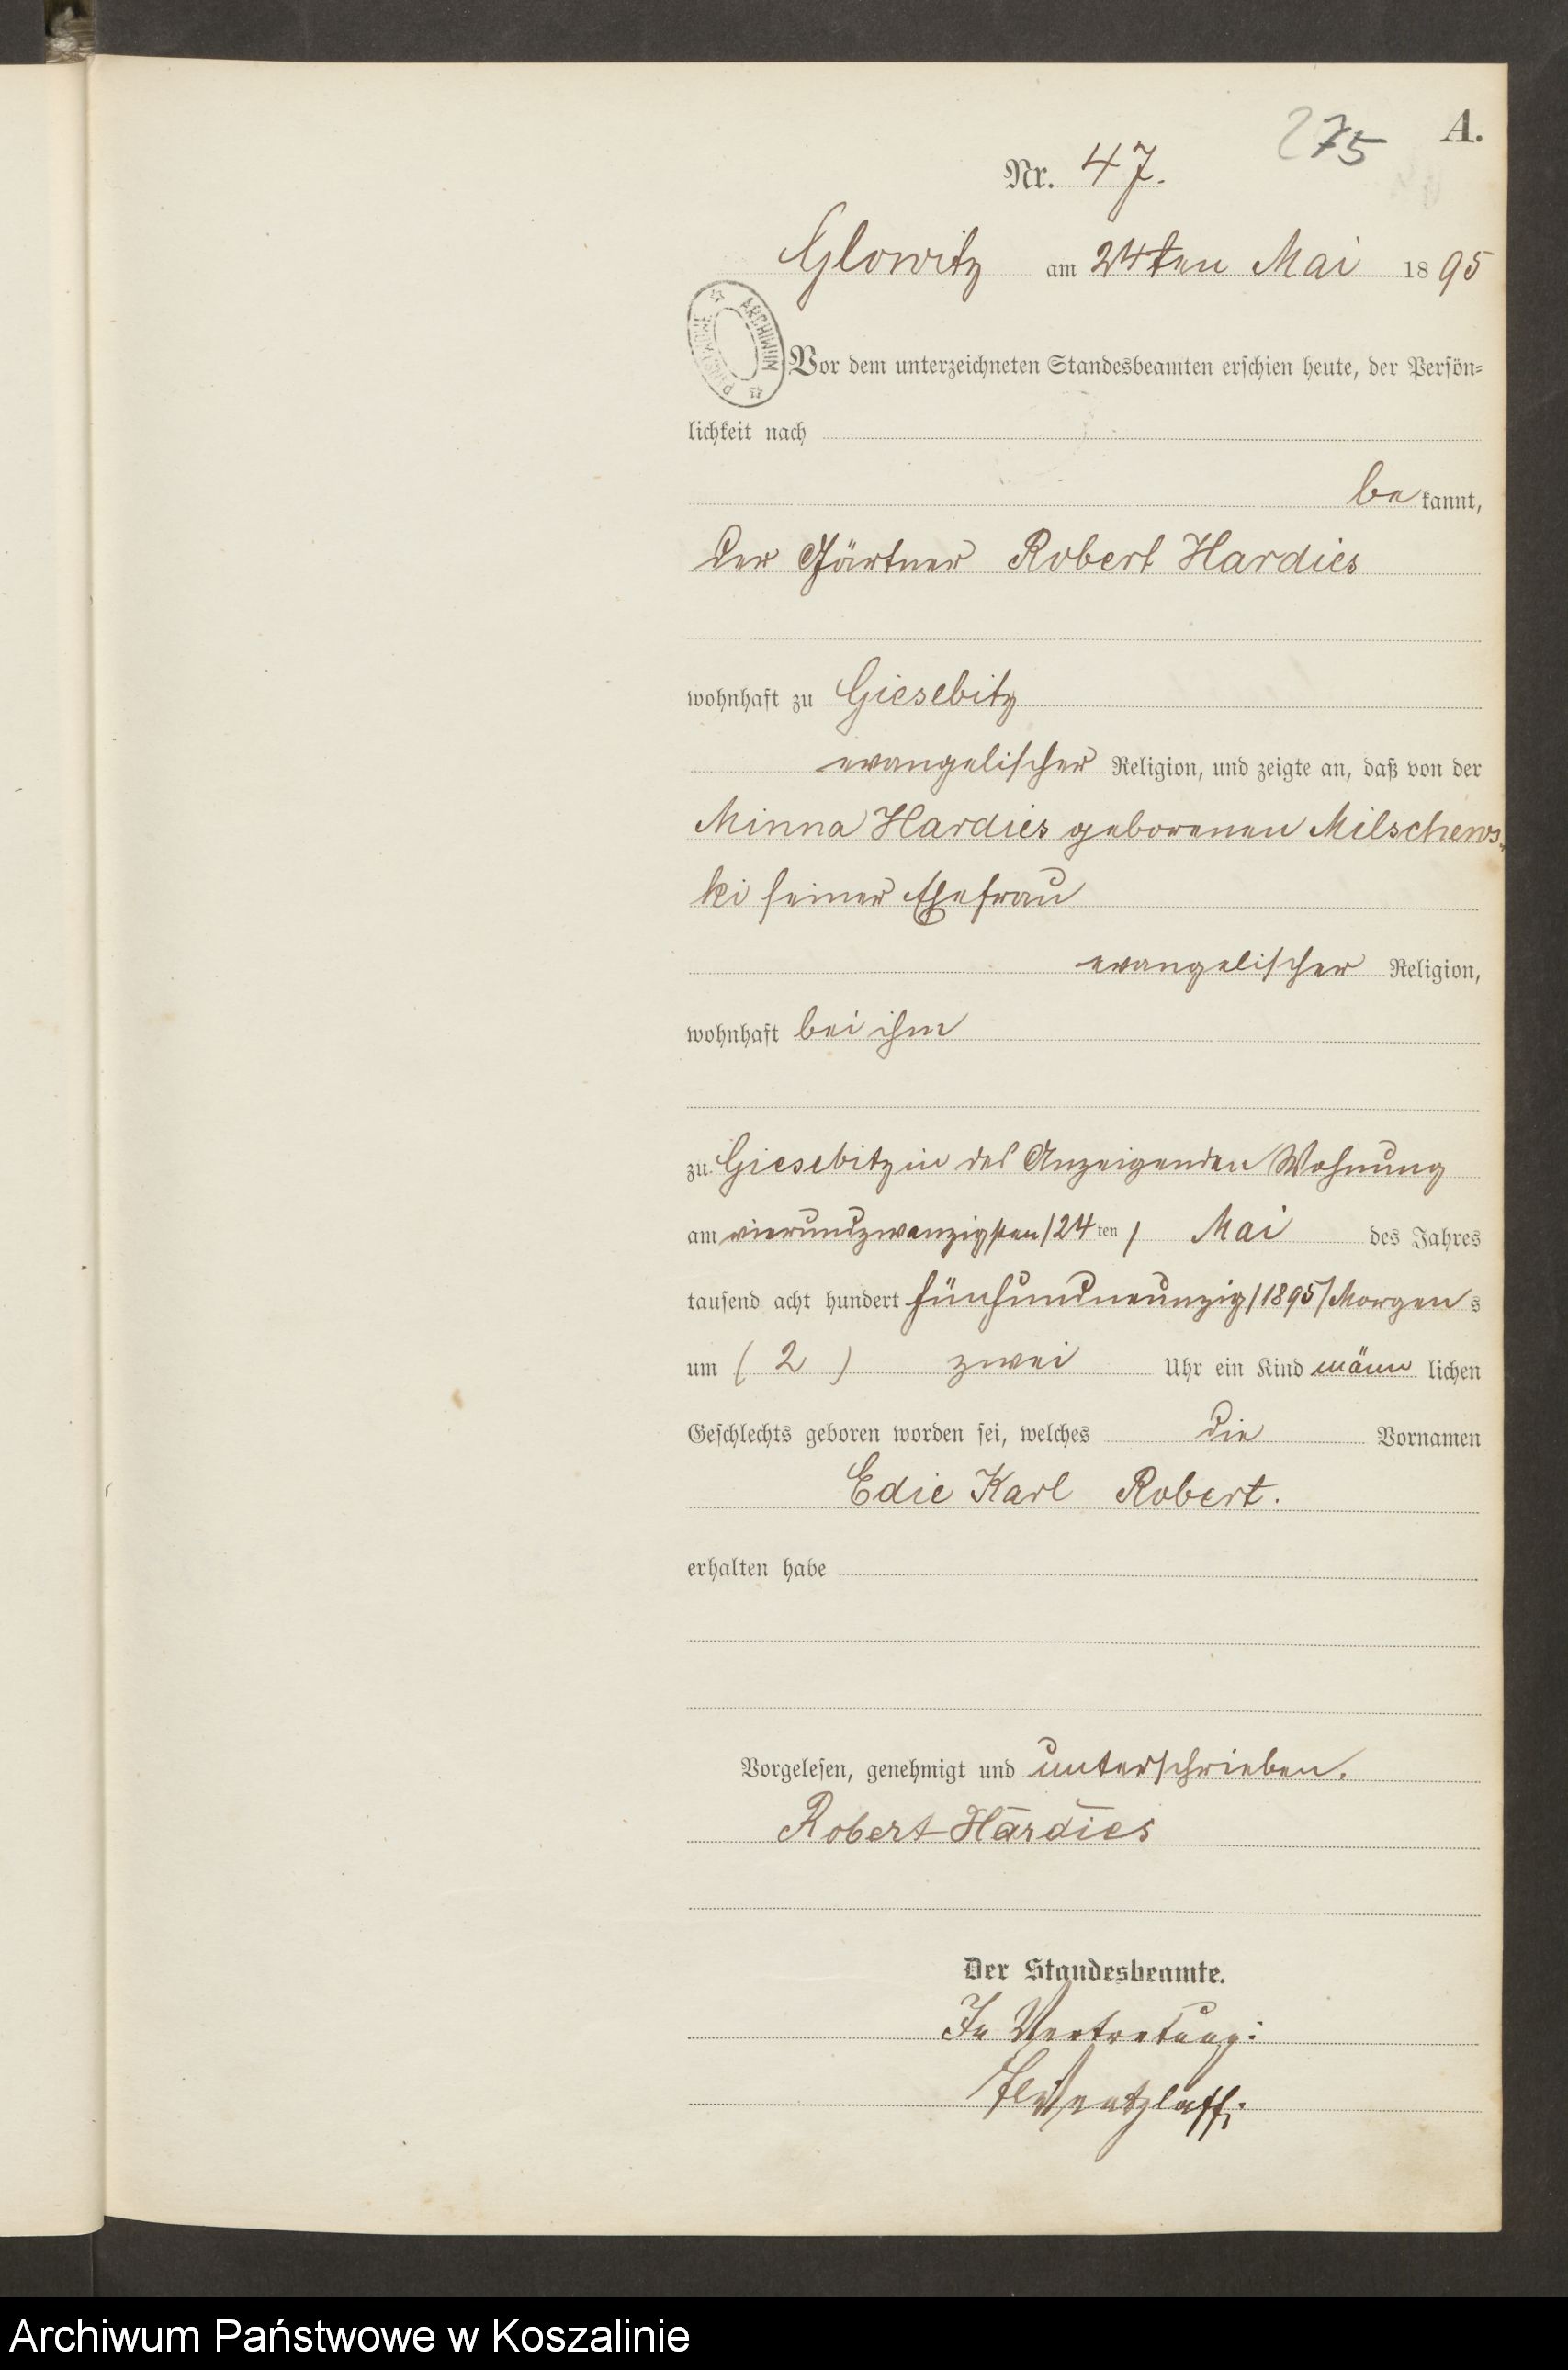 275 A.
Nr. 47.
Glowitz am 24ten Mai 1895
ARCHIWUM PAŃSTWOWE
Vor dem unterzeichneten Standesbeamten erschien heute, der Persön-
lichkeit nach
be kannt,
der Gärtner Robert Hardies
wohnhaft zu Giesebitz
evangelischer Religion, und zeigte an, daß von der
Minna Hardies geborenen Milschews-
ki seiner Ehefrau
evangelischer Religion,
wohnhaft bei ihm
zu Giesebitz in des Anzeigenden Wohnung
am vierundzwanzigsten /24ten/ Mai des Jahres
tausend acht hundert fünfundneunzig /1895/ Morgens
um ( 2 ) zwei Uhr ein Kind männlichen
Geschlechts geboren worden sei, welches die Vornamen
Edie Karl Robert.
erhalten habe
Vorgelesen, genehmigt und unterschrieben.
Robert Hardies
Der Standesbeamte.
In Vertretung:
Archiwum Państwowe w Koszalinie